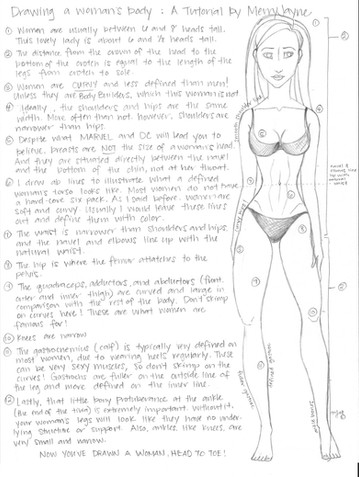 Drawing a woman's body : A Tutorial by MerryJayne
① Women are usually between 6 and 8 heads tall.
This lovely lady is about 6 and ½ heads tall.
② The distance from the crown of the head to the
bottom of the crotch is equal to the length of the
legs from crotch to sole.
③ Women are CURVY and less defined than men!
Unless they are Body Builders, which this woman is not
④ Ideally, the shoulders and hips are the same
width. More often than not, however, shoulders are
narrower than hips.
⑤ Despite what MARVEL and DC will lead you to
believe, breasts are NOT the size of a woman's head.
And they are situated directly between the navel
and the bottom of the chin, not at her throat.
⑥ I drew ab lines to illustrate what a defined
woman's torso looks like. Most women do not have
a hard-core six pack. As I said before, women are
soft and curvy. Usually I would leave these lines
out and define them with color.
⑦ The waist is narrower than shoulders and hips
and the navel and elbows line up with the
natural waist.
⑧ The hip is where the femur attatches to the
pelvis.
⑨ The quadriceps, adductors, and abductors (front,
outer and inner thigh) are curved and large in
comparison with the rest of the body. Don't skimp
on curves here! These are what women are
famous for!
⑩ Knees are narrow
⑪ The gastrocnemius (calf) is typically very defined on
most women, due to wearing heels regularly. These
can be very sexy muscles, so don't skimp on the
curves! Gastrocs are fuller on the outside line of
the leg and more defined on the inner line.
⑫ Lastly, that little bony protuberance at the ankle
(the end of the tibia) is extremely important. Without it,
your woman's legs will look like they have no under-
lying structure or support. Also, ankles, like knees, are
very small and narrow.
NOW YOU'VE DRAWN A WOMAN, HEAD TO TOE!